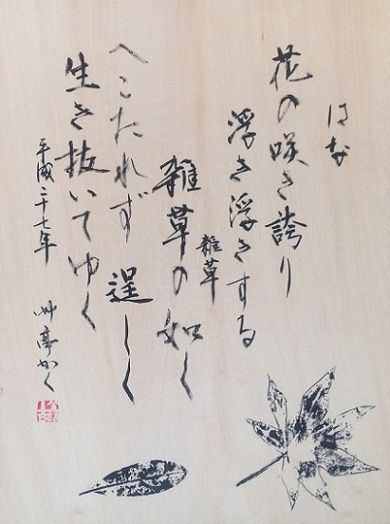 はな
花の咲き誇り
浮き浮きする
雑草
雑草の如く
へこたれず 逞しく
生き抜いてゆく
平成二十七年 艸亭かく